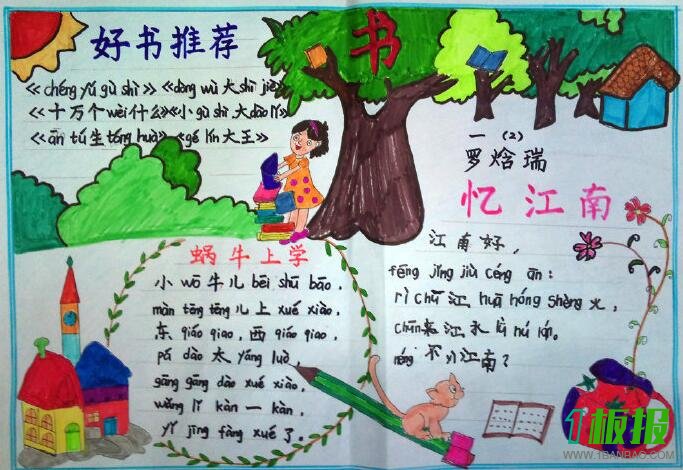 好书推荐
《chéng yǔ gù shì》《dòng wù 大 shì jiè》
《十万个wèi什么》《小gù shì 大dào lǐ》
《ān tú 生 tóng huà》《gé lín 大王》
书
一(2)
罗焓瑞
忆江南
江南好,
fēng jǐng jiù céng ān:
rì chū 江 huā hóng shèng 火,
chūn来江水lǜ rú lán.
néng 不 yì 江南?
蜗牛上学
小 wō 牛儿 bēi shū bāo,
màn tēng tēng 儿上 xué xiào,
东 qiáo qiao, 西 qiáo qiao,
pá dào 太 yáng luò,
gāng gāng dào xué xiào,
wǎng lǐ kàn 一 kàn,
yǐ jīng fàng xué 了.
1板报
WWW.1BANBAO.COM